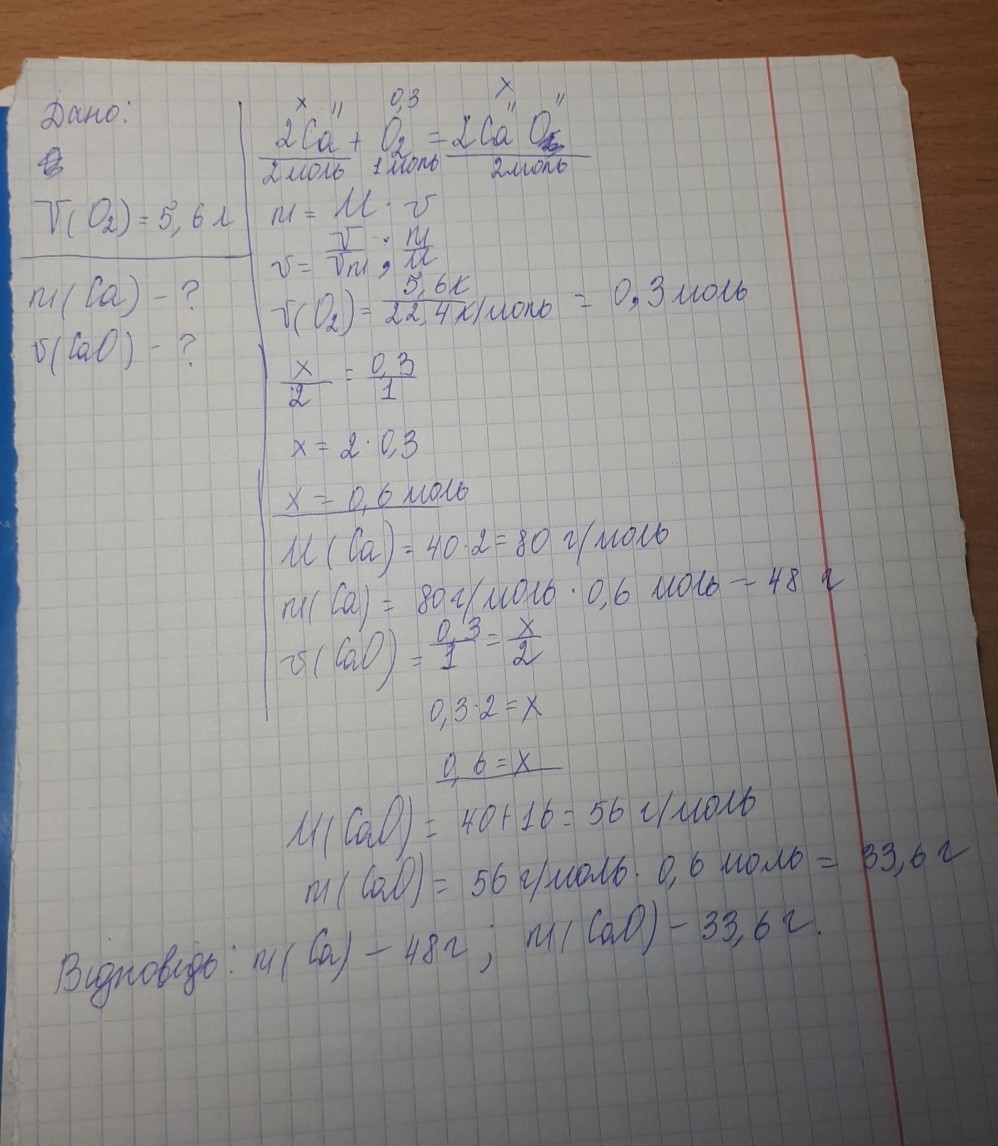 Дано:
V(O₂) = 5,6 л
m(Ca) - ?
v(CaO) - ?
x 0,3 x
II II II
2Ca + O₂ = 2Ca O
2моль 1моль 2моль
m = M · v
v = V/Vm ; m/M
v(O₂) = 5,6л/22,4л/моль = 0,3 моль
x/2 = 0,3/1
x = 2 · 0,3
x = 0,6 моль
M(Ca) = 40·2 = 80 г/моль
m(Ca) = 80г/моль · 0,6 моль - 48 г
v(CaO) = 0,3/1 = x/2
0,3·2 = x
0,6 = x
M(CaO) = 40+16 = 56 г/моль
m(CaO) = 56 г/моль · 0,6 моль = 33,6 г
Відповідь: m(Ca) - 48г ; m(CaO) - 33,6 г.